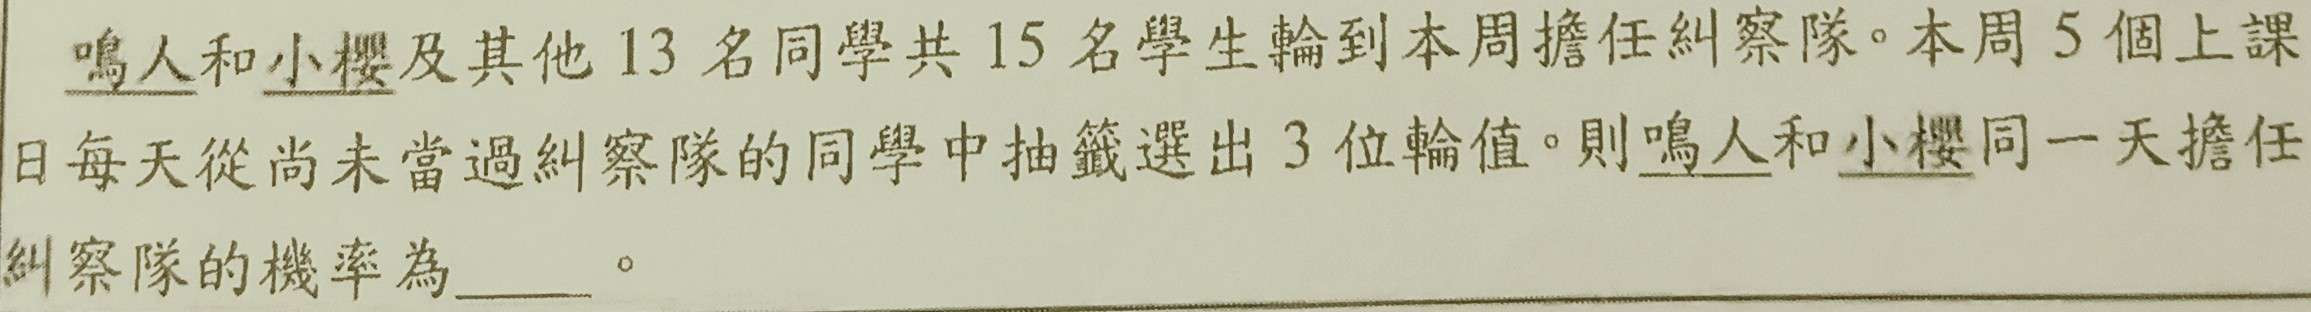 鳴人和小櫻及其他 13 名同學共 15 名學生輪到本周擔任糾察隊。本周 5 個上課
日每天從尚未當過糾察隊的同學中抽籤選出 3 位輪值。則鳴人和小櫻同一天擔任
糾察隊的機率為____。